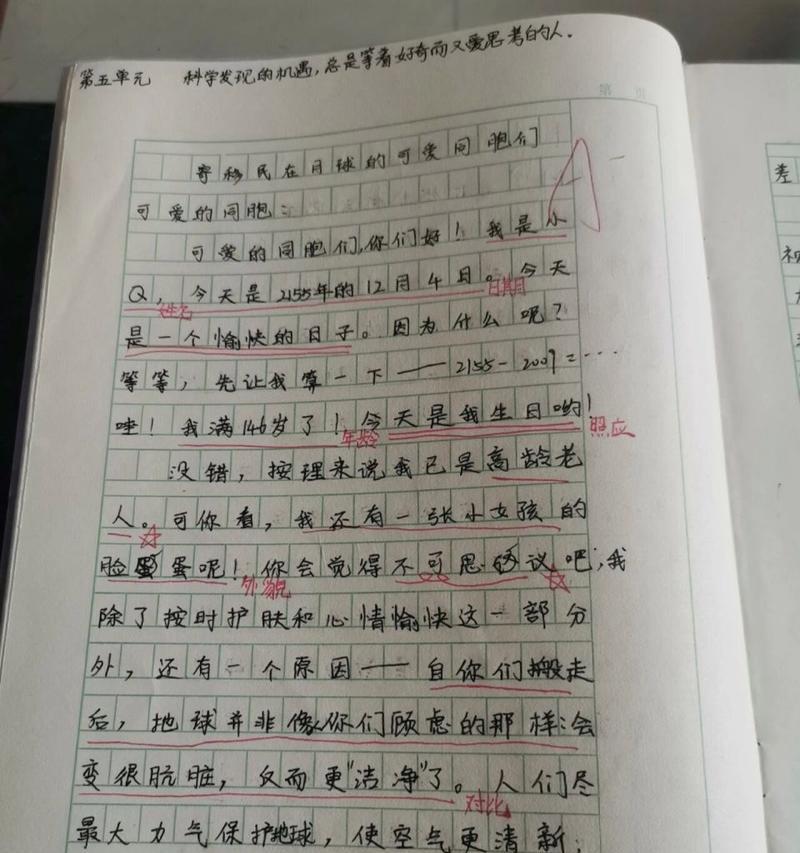 第五单元 科学发现的机遇,总是等着好奇而又爱思考的人.
第 页
寄移民在月球的可爱同胞们
可爱的同胞:
可爱的同胞们,你们好!我是小
Q,今天是2155年的12月4日。今天
姓名 日期
是一个愉快的日子。因为什么呢?
等等,先让我算一下——2155-2009=…
哇!我满146岁了!今天是我生日哟!
年龄 照应
没错,按理来说我已是高龄老
人。可你看,我还有一张小女孩的
脸蛋呢!你会觉得不可思议吧,我
外貌
除了按时护肤和心情愉快这一部分
外,还有一个原因——自你们搬走
后,地球并非像你们顾虑的那样:会
变很肮脏,反而更"洁净"了。人们尽
对比
最大力气保护地球,使空气更清新;
差